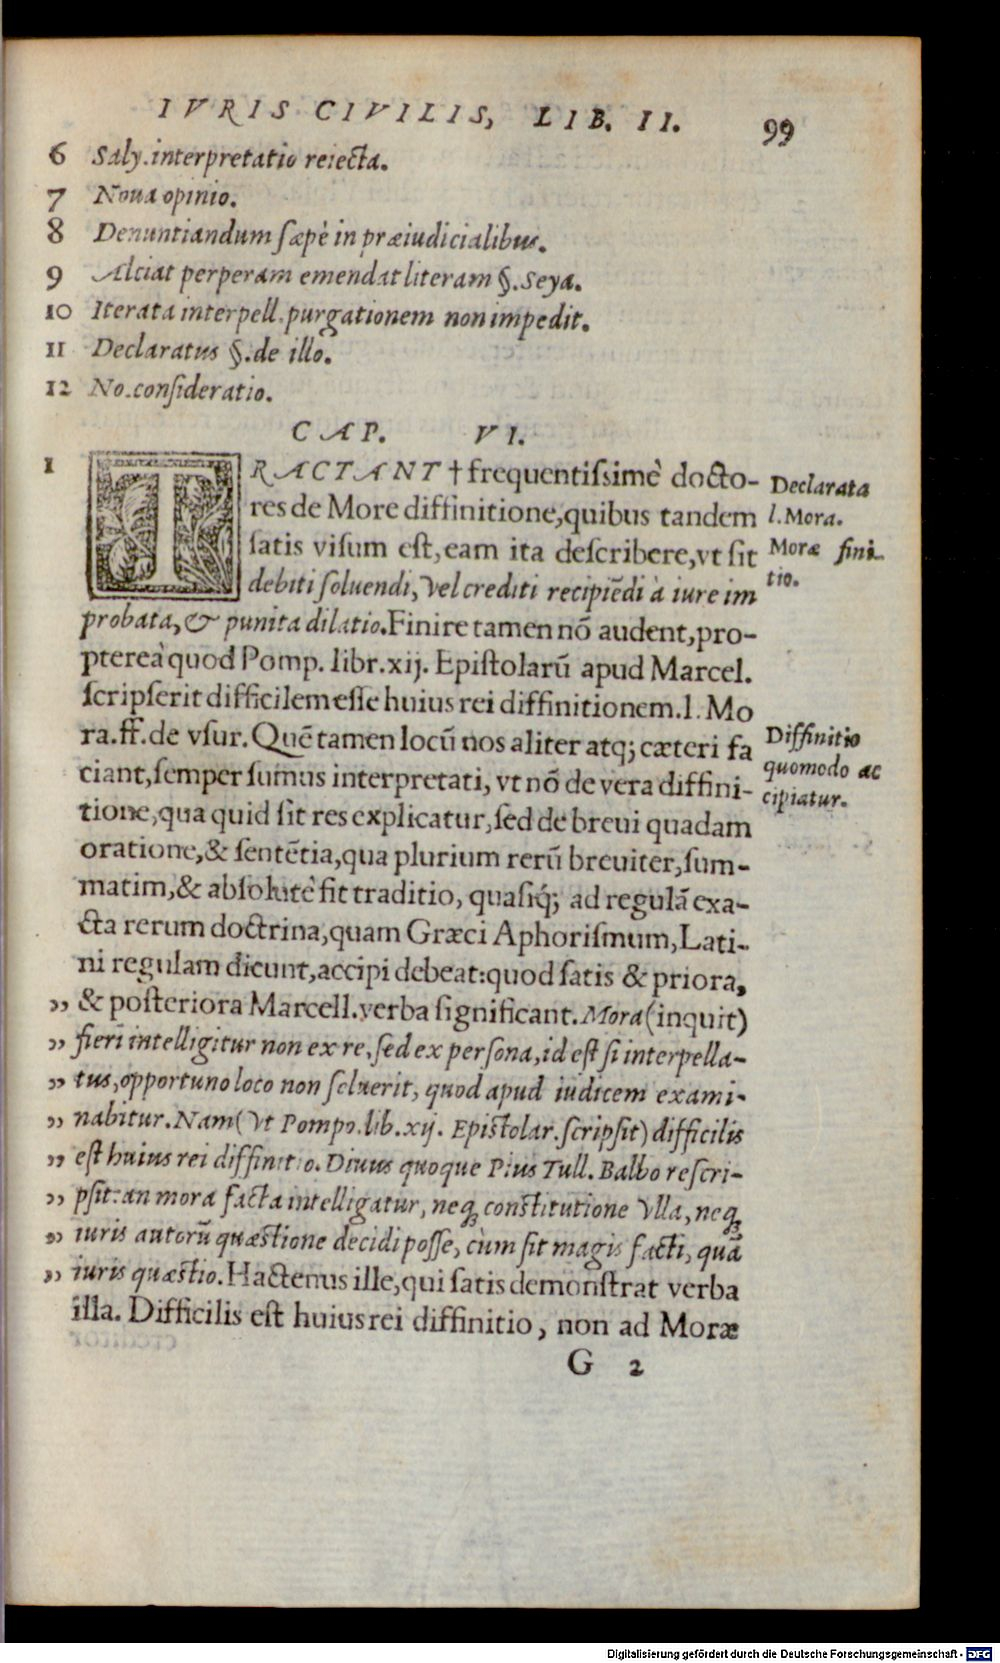 IVRIS CIVILIS, LIB. II. 99
6 Saly.interpretatio reiecta.
7 Noua opinio.
8 Denuntiandum sæpè in præiudicialibus.
9 Alciat perperam emendat literam §.Seya.
10 Iterata interpell.purgationem non impedit.
11 Declaratus §.de illo.
12 No.consideratio.
CAP. VI.
1 TRACTANT † frequentiſsimè docto-
res de More diffinitione,quibus tandem
ſatis viſum eſt,eam ita deſcribere,vt ſit
debiti ſoluendi, vel crediti recipiẽdi à iure im
probata, & punita dilatio.Finire tamen nõ audent,pro-
ptereà quod Pomp. libr.xij. Epiſtolarũ apud Marcel.
ſcripſerit difficilem eſſe huius rei diffinitionem.l. Mo
ra.ff.de vſur. Quẽ tamen locũ nos aliter atq; cæteri fa
ciant,ſemper ſumus interpretati, vt nõ de vera diffini-
tione,qua quid ſit res explicatur,ſed de breui quadam
oratione,& ſentẽtia,qua plurium rerũ breuiter,ſum-
matim,& abſolutè fit traditio, quaſiq́; ad regulã exa-
cta rerum doctrina,quam Græci Aphoriſmum,Lati-
ni regulam dicunt,accipi debeat:quod ſatis & priora,
„ & poſteriora Marcell.verba ſignificant.Mora(inquit)
„ fieri intelligitur non ex re, ſed ex perſona,id eſt ſi interpella-
„ tus,opportuno loco non ſoluerit, quod apud iudicem exami-
„ nabitur. Nam( vt Pompo.lib.xij. Epiſtolar.ſcripſit) difficilis
„ eſt huius rei diffinitio. Diuus quoque Pius Tull. Balbo reſcri-
„ pſit:an mora facta intelligatur, neq; conſtitutione vlla, neq;
„ iuris autorũ quæſtione decidi poſſe, cùm ſit magis facti, quã
„ iuris quæſtio. Hactenus ille,qui ſatis demonſtrat verba
illa. Difficilis eſt huius rei diffinitio, non ad Moræ
G 2
Declarata
l.Mora.
Moræ fini-
tio.
Diffinitio
quomodo ac
cipiatur.
Digitalisierung gefördert durch die Deutsche Forschungsgemeinschaft - DFG